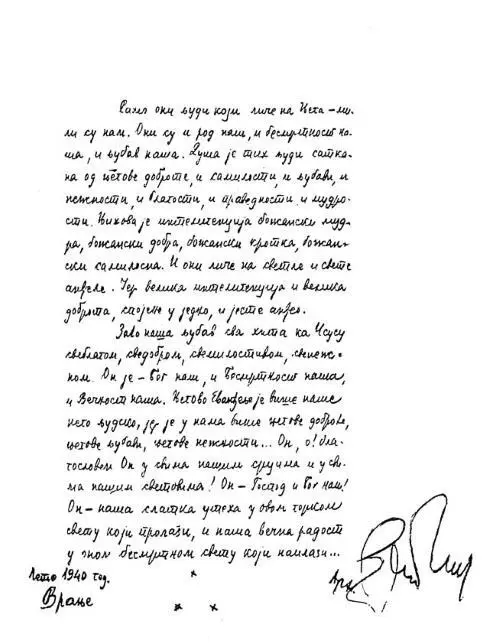 Само они људи који личе на Њега – ми-
ли су нам. Они су и род наш, и бесмртност на-
ша, и љубав наша. Душа је тих људи сатка-
на од његове доброте, и самилости, и љубави, и
нежности, и благости, и праведности, и мудро-
сти. Њихова је интелигенција божански муд-
ра, божански добра, божански кротка, божан-
ски самилосна. И они личе на светле и свете
анђеле. Јер велика интелигенција и велика
доброта, спојене у једно, и јесте анђео.
Зато наша љубав сва хита ка Исусу
свеблагом, сведобром, свемилостивом, свенеж-
ном. Он је – Бог наш, и Бесмртност наша,
и Вечност наша. Његово Еванђеље је више наше
него људско, јер је у нама више његове доброте,
његове љубави, његове нежности... Он, о! бла-
гословен Он у свима нашим срцима и у сви-
ма нашим световима! Он – Господ и Бог наш!
Он – наша слатка утеха у овом горком
свету који пролази, и наша вечна радост
у оном бесмртном свету који наилази...
Лето 1940 год.
Врање